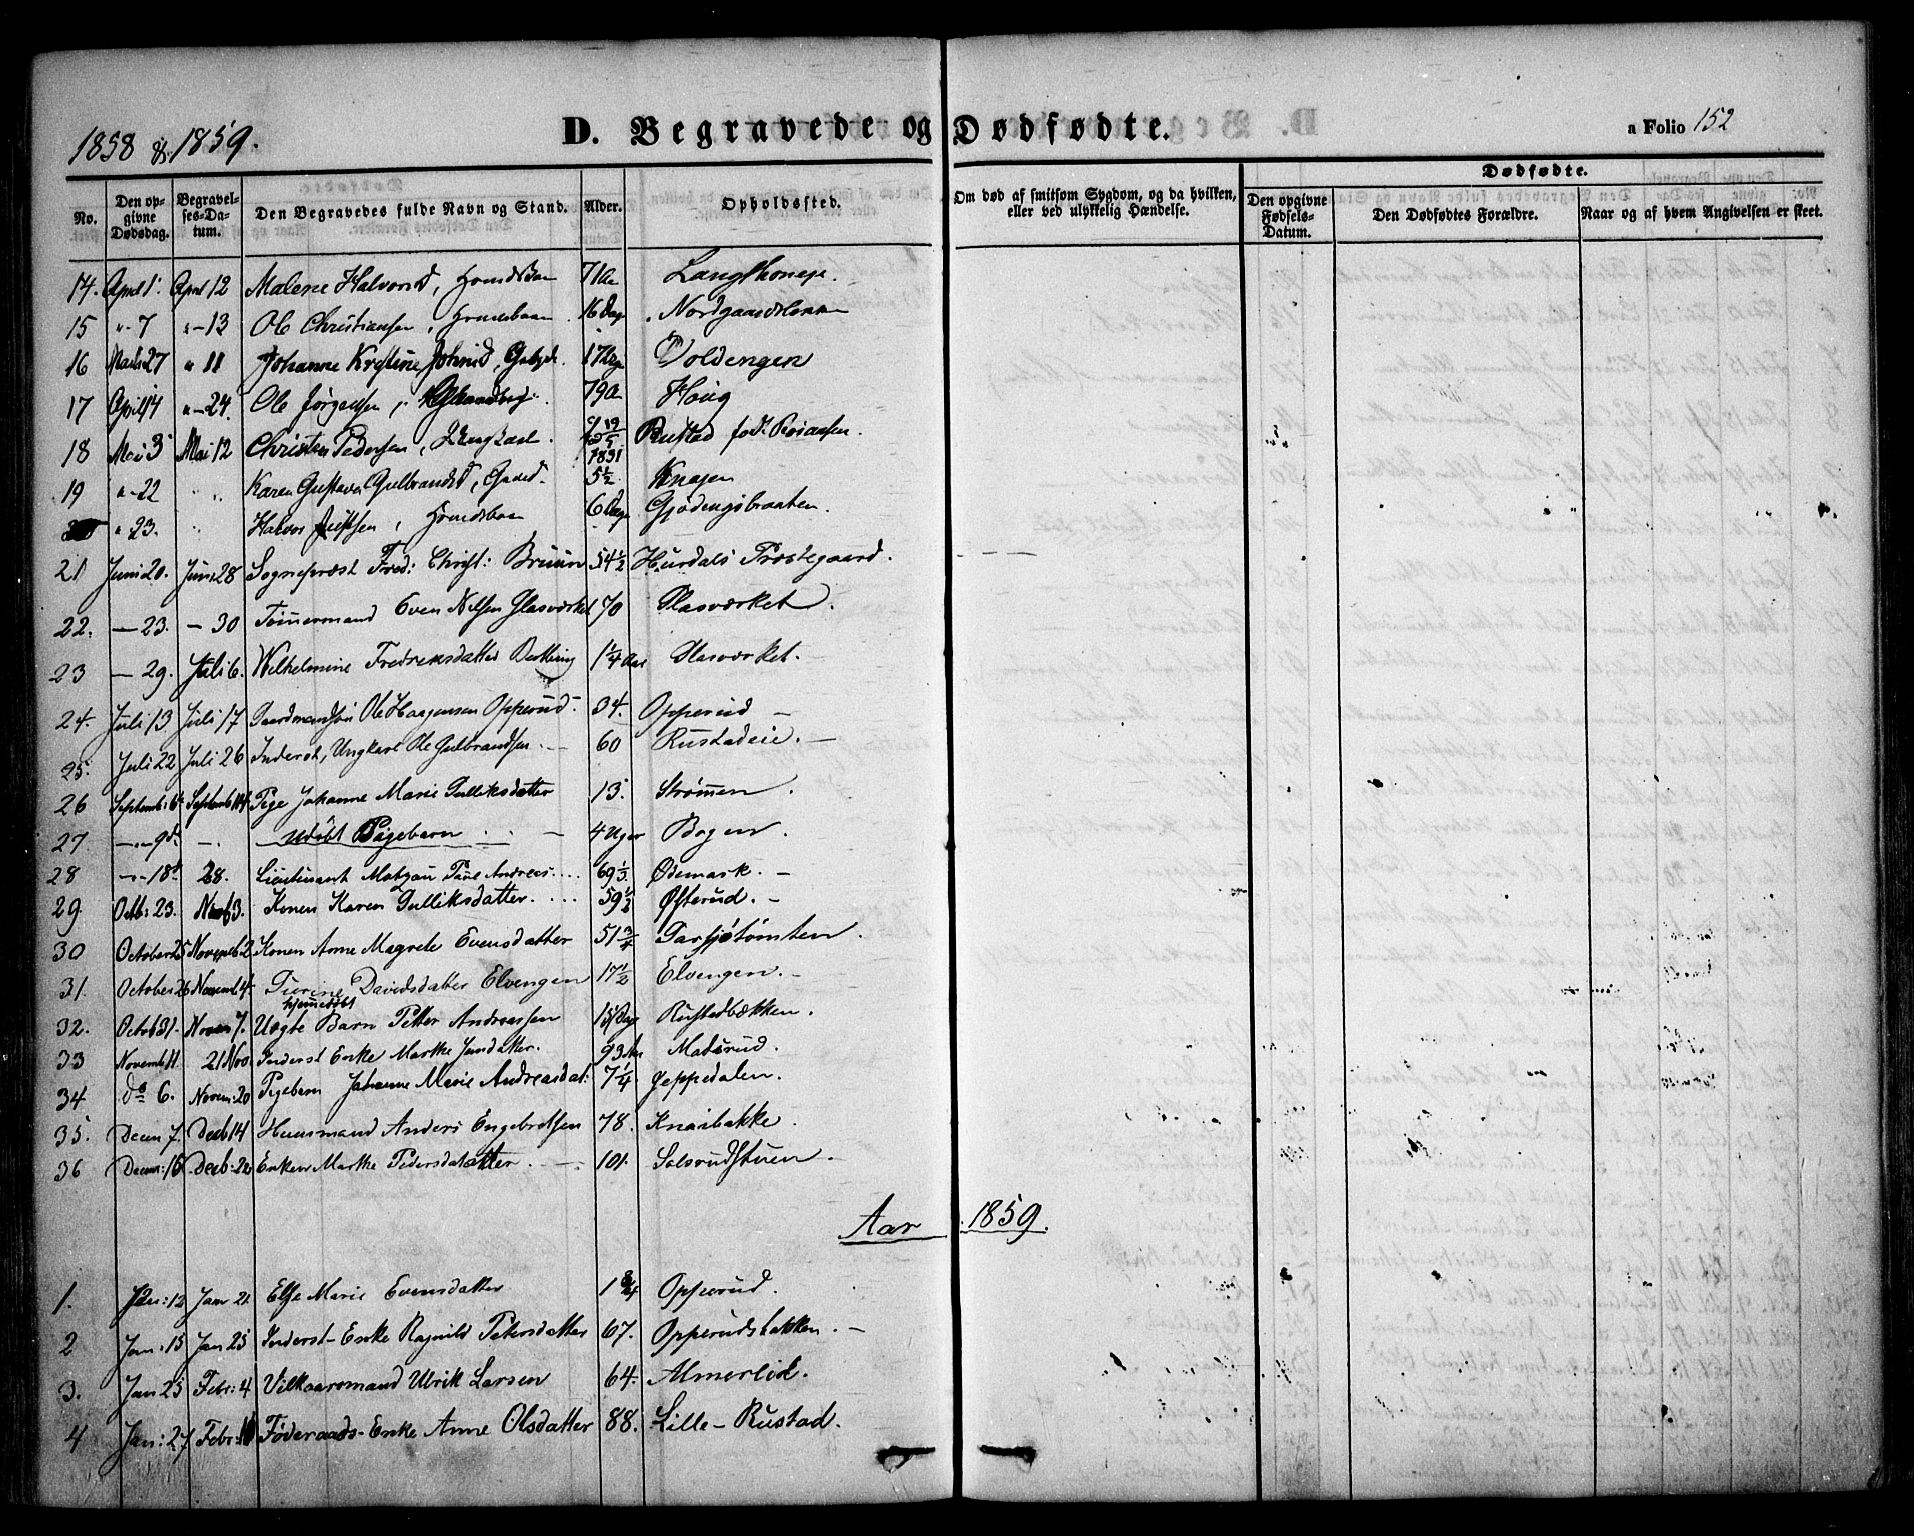 1858 & 1859.
D. Begravede og Dødfødte.
a Folio 152
No.
Den opgivne Dødsdag.
Begravelses-Datum.
Den Begravedes fulde Navn og Stand.
Alder.
Opholdssted.
Om død af smitsom Sygdom, og da hvilken, eller ved ulykkelig Hændelse.
Dødfødte.
Den opgivne Fødsels-Datum.
Den Dødfødtes Forældre.
Naar og af hvem Angivelsen er skeet.
14. April 1. April 12 Malene Halvorsd, 71 Aar
15 " 7 " 13 Ole Christiansen, 16 Dage
16 Marts 27 " 11 Johanne Johnsd, Voldengen
17 April 14 " 24. Ole Jørgensen, 79 Houg
18 Mai 3 Mai 12 Christen Pedersen, 1831 Rustad
19 " 22 " Karen Gustava Gulbrandsd, 5½ Knajen
" 23. " Halvor 6 Dage Gjødingsbraaten.
21 Juni 20. Juni 28 Sogneprest Fred: Christ: Bruun 54½ Hurdals Præstegaard.
22. — 23. — 30 Tømmermand Even Nilsen Glasværket 70 Glasværket.
23 — 29. Juli 6. Wilhelmine Fredreksdatter 1¼ Aar Glasværket.
24. Juli 13 Juli 17 Ole Haagensen Opperud. 34. Opperud —
25. Juli 22 Juli 26 Inderst, Ungkarl Ole Gulbrandsen. — 60 Rustadeie. —
26 Septemb: 6 Septemb 14 Pige Johanne Marie Gulliksdatter 13. Strømen.
27 — 9d. —. Udøbt Pigebarn — 4 Uger Bogen.
28 — 18d 28. Lieutenant Andreas 69 Ødemark. —
29. Octb: 23. Novb 3. Konen Karen Gulliksdatter. 59½ Østerud. —
30 October 25 Novemb 2 Konen Anne Magrete Evensdatter 51¾ Garsjøtomten.
31. October 26 Novemb 4 Davidsdatter Elvengen 17½ Elvengen. —
32. Octob 31. Novem 7. Uægte hjemmedøbt Barn Petter Andreassen 15 Dage Rustadbækken.
33 Novemb 11 21 Nov Inderst Enke Marthe 93 Aar Matsrud.
34 do 6. Novem: 20 Pigebarn Johanne Marie Andreasdat: 7¼ Gjeppedalen.
35. Decem 7. Decb 14 Huusmand Anders Engebretsen 78. Knaibakke.
36 Decem: 16 Decb: Enken Marthe Pedersdatter. — 101. Solsrudstuen. —
Aar 1859.
1. Jan: 12 Jan 21. Else Marie Evensdatter 1¾ Opperud.
2 Jan: 15 Jan 25 Inderst-Enke Ragnild Petersdatter 67. Opperudsbakken. —
3. Jan 25 Febr: 4 Vilkaarsmand Ulrik Larsen 64. Almerlid.
4 Jan: 27 Febr: Føderaads-Enke Anne Olsdatter 88. Lille-Rustad.